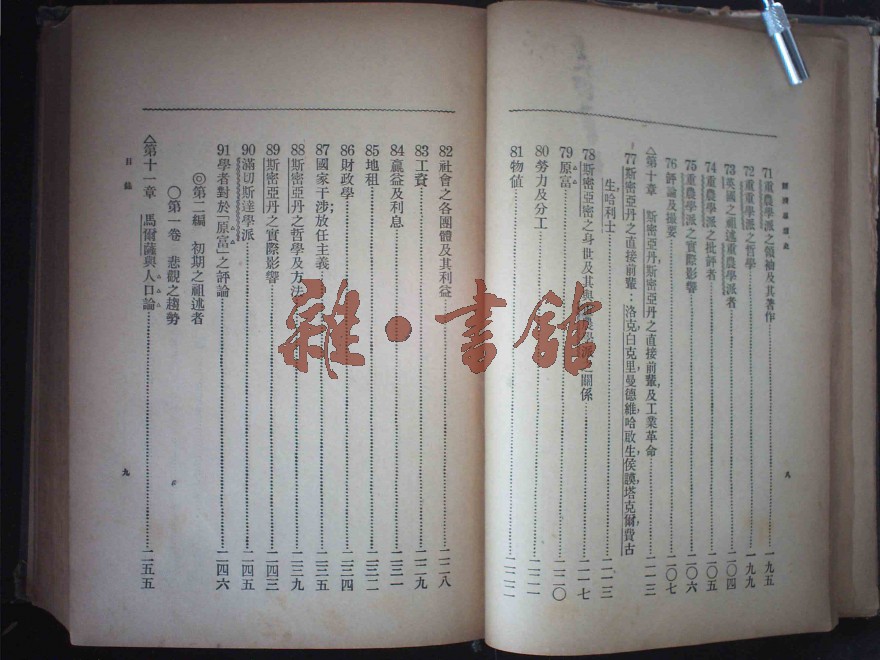 經濟思想史
71 重農學派之領袖及其著作 一九五
72 重重學派之哲學 一九九
73 英國之祖述重農學派者 二〇四
74 重農學派之批評者 二〇五
75 重農學派之實際影響 二〇六
76 評論及撮要 二〇七
第十章 斯密亞丹，斯密亞丹之直接前輩，及工業革命 二一三
77 斯密亞丹之直接前輩：洛克，白克里，曼德維，哈敢生，侯謨，塔克爾，費古
生，哈利士 二一三
78 斯密亞密之身世及其與重農學派之關係 二一七
79 原富 二二〇
80 勞力及分工 二二一
81 物值 二二二
八
82 社會之各團體及其利益 二二八
83 工資 二二九
84 贏益及利息 二三一
85 地租 二三二
86 財政學 二三四
87 國家干涉；放任主義 二三五
88 斯密亞丹之哲學及方法 二三九
89 斯密亞丹之實際影響 二四三
90 滿切斯達學派 二四五
91 學者對於「原富」之評論 二四六
◎第二編 初期之祖述者
〇第一卷 悲觀之趨勢
第十一章 馬爾薩與人口論 二五五
目錄
九
雜·書館